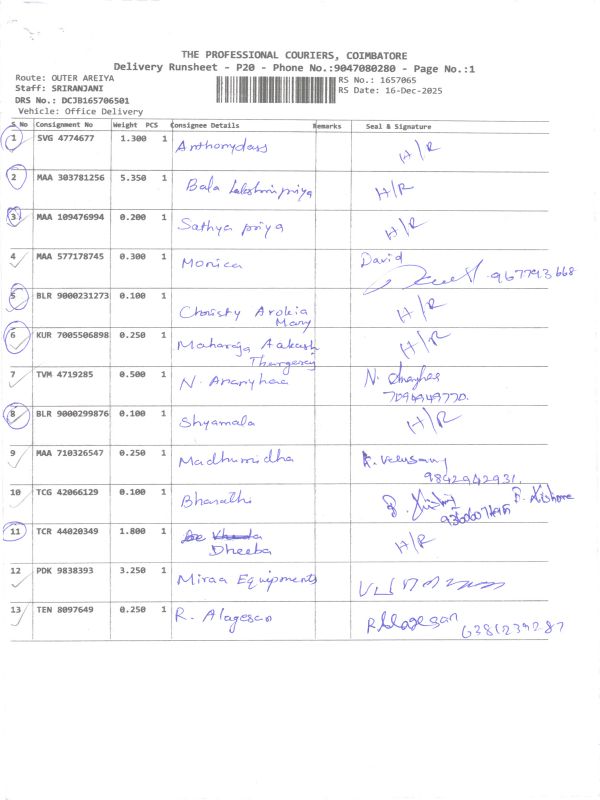 THE PROFESSIONAL COURIERS, COIMBATORE
Delivery Runsheet - P20 - Phone No.:9047080280 - Page No.:1
Route: OUTER AREIYA
RS No.: 1657065
Staff: SRIRANJANI
RS Date: 16-Dec-2025
DRS No.: DCJB165706501
Vehicle: Office Delivery
S No Consignment No Weight PCS Consignee Details Remarks Seal & Signature
1 SVG 4774677 1.300 1 Anthonydass H/R
2 MAA 303781256 5.350 1 Bala Lakshmipriya H/R
3 MAA 109476994 0.200 1 Sathya priya H/R
4 MAA 577178745 0.300 1 Monica David
5 BLR 9000231273 0.100 1 Christy Arokia Mary H/R
6 KUR 7005506898 0.250 1 Maharaja Aakash H/R
7 TVM 4719285 0.500 1 N. Ananyhaa N. Ananyhaa
7094949770.
8 BLR 9000299876 0.100 1 Shyamala H/R
9 MAA 710326547 0.250 1 Madhumidha K. Velusamy
9842942931.
10 TCG 42066129 0.100 1 Bharathi P. Kishore
11 TCR 44020349 1.800 1 Dheeba H/R
12 PDK 9838393 3.250 1 Miraa Equipments
13 TEN 8097649 0.250 1 R. Alagesan R. Alagesan
6381239287